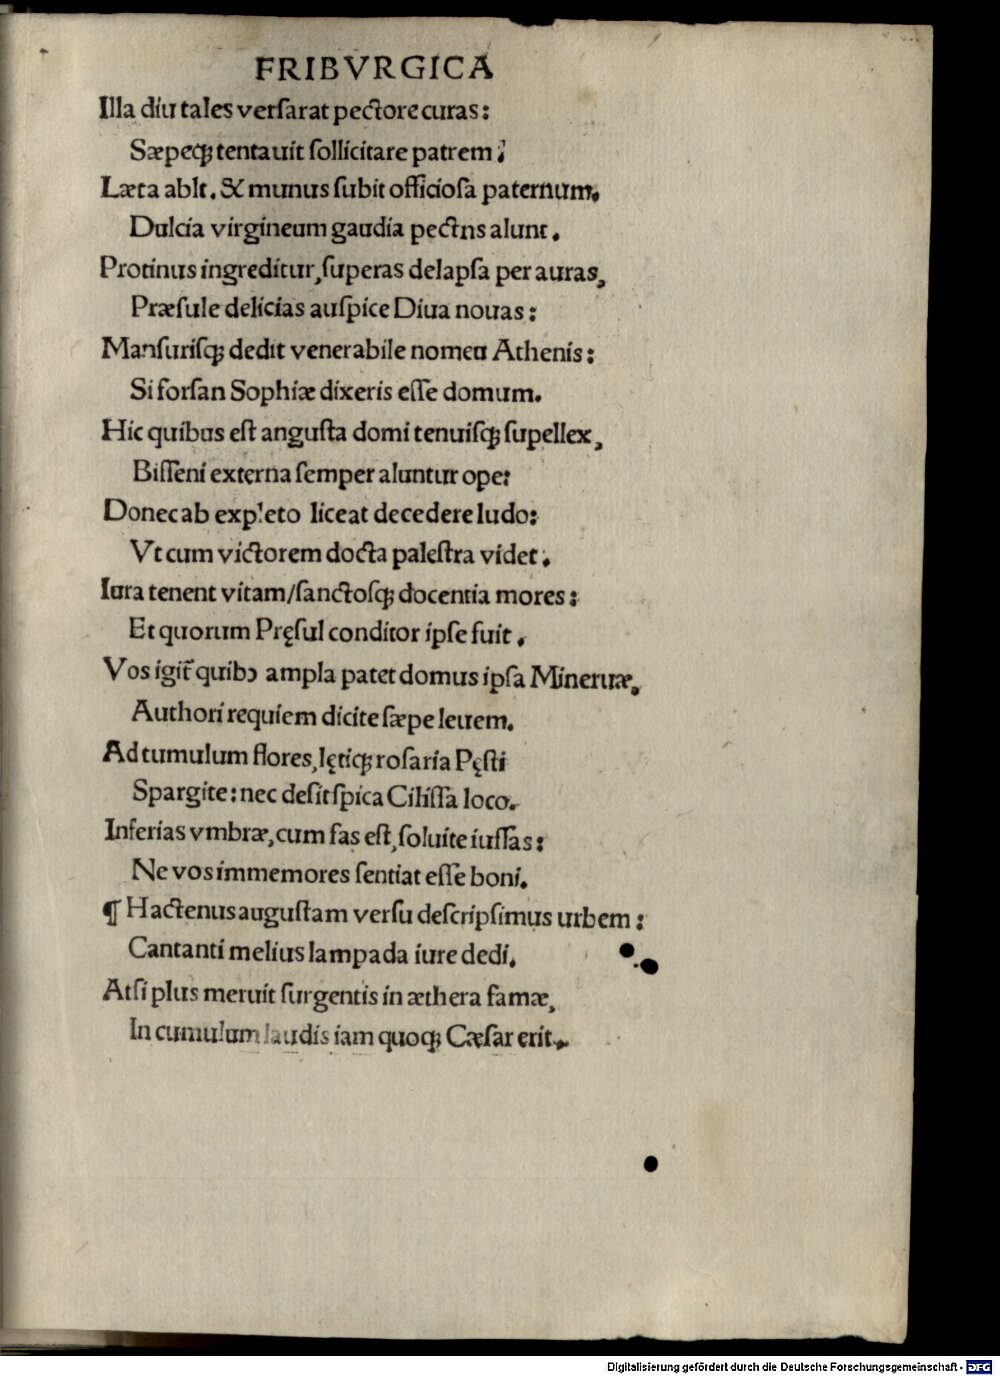 FRIBVRGICA
Illa diu tales verſarat pectore curas:
Sæpeqꝫ tentauit ſollicitare patrem:
Læta abIt. & munus ſubit officioſa paternum.
Dulcia virgineum gaudia pectns alunt.
Protinus ingreditur, ſuperas delapſa per auras,
Præſule delicias auſpice Diua nouas:
Manſuriſqꝫ dedit venerabile nomen Athenis:
Si forſan Sophiæ dixeris eſſe domum.
Hic quibus eſt anguſta domi tenuiſqꝫ ſupellex,
Biſſeni externa ſemper aluntur ope:
Donec ab expleto liceat decedere ludo:
Vt cum victorem docta paleſtra videt.
Iura tenent vitam/ſanctoſqꝫ docentia mores:
Et quorum Pręſul conditor ipſe fuit.
Vos igit᷑ quibꝰ ampla patet domus ipſa Mineruæ,
Authori requiem dicite ſæpe leuem.
Ad tumulum flores, lętiqꝫ roſaria Pęſti
Spargite: nec deſit ſpica Ciliſſa loco.
Inferias vmbræ, cum fas eſt, ſoluite iuſſas:
Ne vos immemores ſentiat eſſe boni.
¶ Hactenus auguſtam verſu deſcripſimus urbem:
Cantanti melius lampada iure dedi.
At ſi plus meruit ſurgentis in æthera famæ,
In cumulum laudis iam quoqꝫ Cæſar erit.
Digitalisierung gefördert durch die Deutsche Forschungsgemeinschaft - DFG